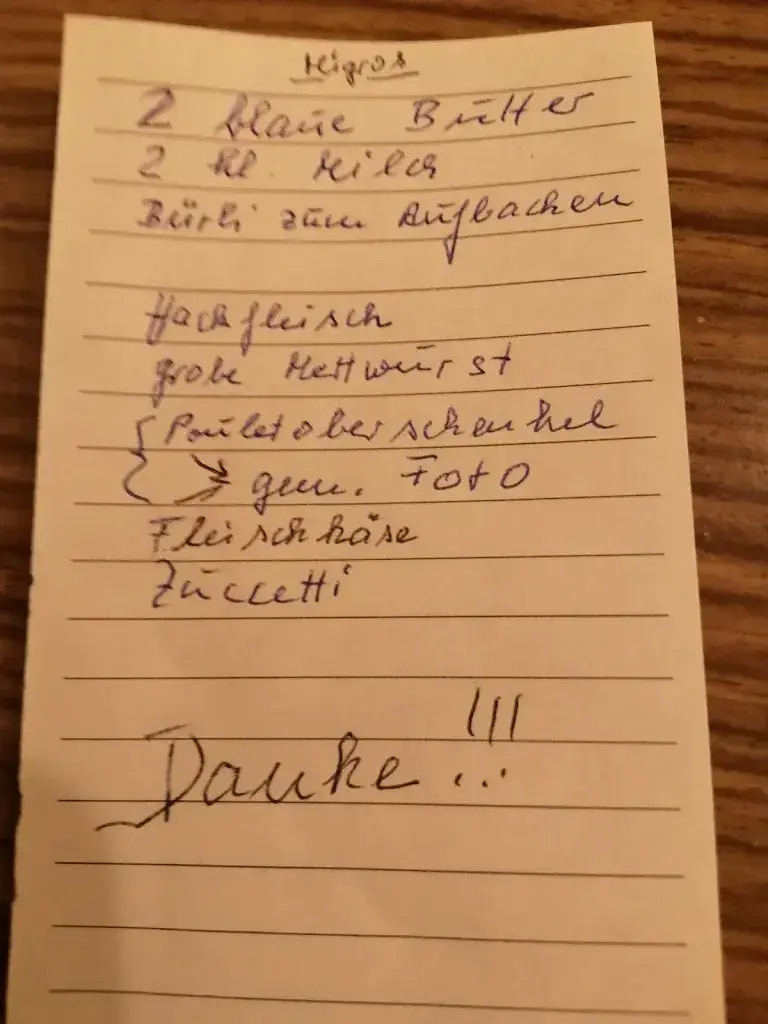 Migros
2 blaue Butter
2 kl. Milch
Bürli zum Aufbachen
Hackfleisch
grobe Mettwurst
Pouletoberschenkel
→ gem. Foto
Fleischkäse
Zuccetti
Danke...!!!